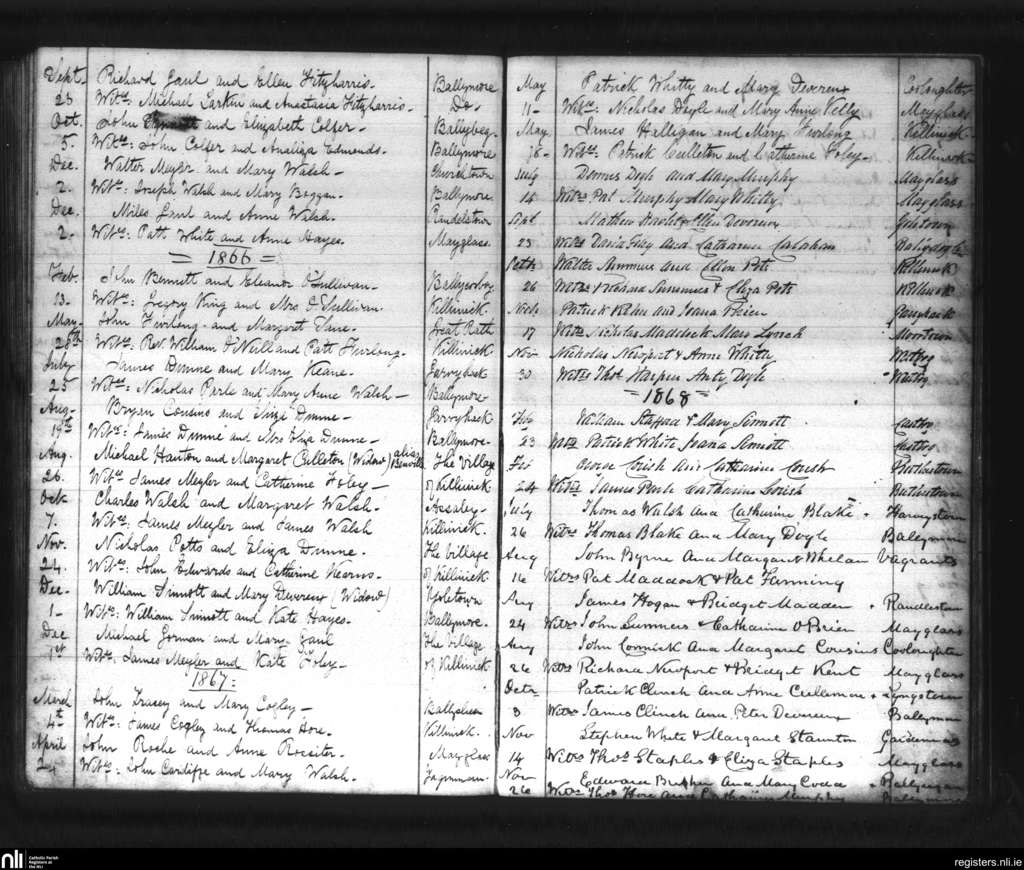 Sept. Richard Gaul and Ellen Fitzharris. Ballymore
23 Wits: Michael Larkin and Anastasia Fitzharris. Do.
Oct. John and Elizabeth Colfer. Ballybeg.
5. Wits: John Colfer and Analiza Edmunds. Ballymore
Dec. Walter Meyler and Mary Walsh. Churchtown
2. Wits: Joseph Walsh and Mary Boggan. Ballymore.
Dec. Miles Gaul and Anne Walsh. Randelstown
2. Wits: Patt White and Anne Hayes. Mayglass.
= 1866 =
Feb. John Bennett and Eleanor O'Sullivan.
13. Wits: Gregory King and Mrs O'Sullivan. Killinick.
May John Furlong and Margaret Great Rath
26th Wits: Rev. William O'Neill and Patt Furlong. Killinick
July James Dunne and Mary Keane.
25 Wits: Nicholas Parle and Mary Anne Walsh Ballymore
Aug. Bryan Cousins and Eliza Dunne
19th Wits: James Dunne and Mrs Eliza Dunne Ballymore
Aug. Michael Hanton and Margaret Culleton (Widow) alias The Village
26. Wits: James Meyler and Catherine Foley of Killinick.
Oct Charles Walsh and Margaret Walsh. Assaley
7. Wits: James Meyler and James Walsh Killinick.
Nov. Nicholas Potts and Eliza Dunne. The Village
24. Wits: John Edwards and Catherine Kearns. of Killinick
Dec. William Sinnott and Mary Devereux (Widow)
1 Wits: William Sinnott and Kate Hayes. Ballymore.
Dec Michael Gorman and Mary Gaul The Village
1st Wits: James Meyler and Kate Foley of Killinick
1867:
March John Tracey and Mary Cogley
4th Wits: James Cogley and Thomas Hore. Killinick.
April John Roche and Anne Rossiter. Mayglass
2 Wits: John Cardiffe and Mary Walsh.
May Patrick Whitty and Mary Devereux
11 Wits: Nicholas Doyle and Mary Anne Kelly Mayglass
May James Halligan and Mary Furlong Killinick
18 Wits: Patrick Culleton and Catherine Foley Killinick
July Dennis Doyle and Mary Murphy Mayglass
14 Wits Pat Murphy Mary Whitty Mayglass
Sept Mathew & Ellen Devereux
23 Wits David Foley and Catharine
Walter Summers and Ellen Pots Killinick
26 Wits Johanna Summers & Eliza Pots Killinick
Patrick and Joana
17 Wits Nicholas Maddock Mary Lynch
Nov Nicholas Newport & Anne White
30 Wits Thos Harpur Anty Doyle
= 1868 =
Feb William Stafford & Mary Sinnott
23 Wits Patrick White Joana Sinnott
Feb Corish and Catharine Corish
24 Wits James Parle Catharine Corish
July Thomas Walsh and Catherine Blake Harveystown
26 Wits Thomas Blake and Mary Doyle
Aug John Byrne and Margaret Whelan Vagrants
16 Wits Pat Maddock & Pat Fanning
Aug James Hogan & Bridget Madden Randlestown
24 Wits John Summers & Catharine O'Brien Mayglass
Aug John Cormick and Margaret Cousins
26 Wits Richard Newport & Bridget Kent Mayglass
Octr Patrick Clinch and Anne Cullemon
3 Wits James Clinch and Peter Devereux
Nov Stephen White & Margaret Staunton
14 Wits Thos Staples & Eliza Staples Mayglass
Nov Edward and Mary Codd
26 Wits Thos Hore and Catharine Murphy
nli
Catholic Parish
Registers at
the NLI
registers.nli.ie